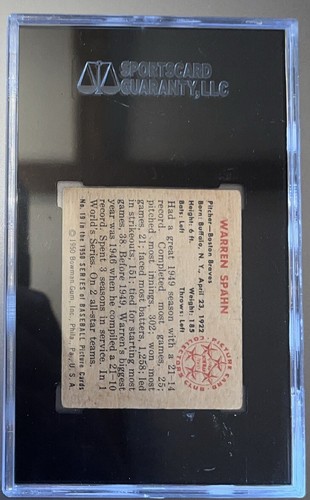 SPORTSCARD
GUARANTY, LLC
WARREN SPAHN
Pitcher—Boston Braves
Born: Buffalo, N. Y., April 23, 1922
Height: 6 ft. Weight: 185
Bats: Left Throws: Left
Had a great 1949 season with a 21-14
record. Completed most games, 25;
pitched most innings, 302; won most
games, 21; faced most batters, 1,258; led
in strikeouts, 151; tied for starting most
games, 38. Before 1949, Warren's biggest
year was 1946 when he compiled a 21-10
record. Spent 3 seasons in service. In 1
World's Series. On 2 all-star teams.
No. 19 in the 1950 SERIES of BASEBALL Picture Cards
© 1950 Bowman Gum, Inc., Phila., Pa., U. S. A.
PICTURE CARD
COLLECTORS